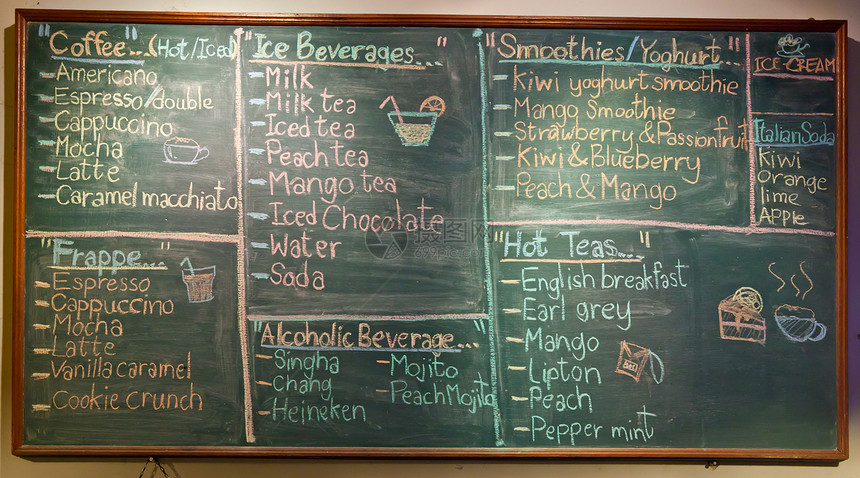 "Coffee...(Hot/Iced)"
-Americano
-Espresso/double
-Cappuccino
-Mocha
-Latte
-Caramel macchiato
"Frappe..."
-Espresso
-Cappuccino
-Mocha
-Latte
-Vanilla caramel
-Cookie crunch
"Ice Beverages..."
-Milk
-Milk tea
-Iced tea
-Peach tea
-Mango tea
-Iced Chocolate
-Water
-Soda
"Alcoholic Beverage..."
-Singha
-Chang
-Heineken
-Mojito
-Peach Mojito
"Smoothies/Yoghurt..."
-Kiwi yoghurt smoothie
-Mango Smoothie
-Strawberry & Passionfruit
-Kiwi & Blueberry
-Peach & Mango
ICE-CREAM
Italian Soda
Kiwi
orange
lime
Apple
"Hot Teas..."
-English breakfast
-Earl grey
-Mango
-Lipton
-Peach
-Pepper mint
摄图网